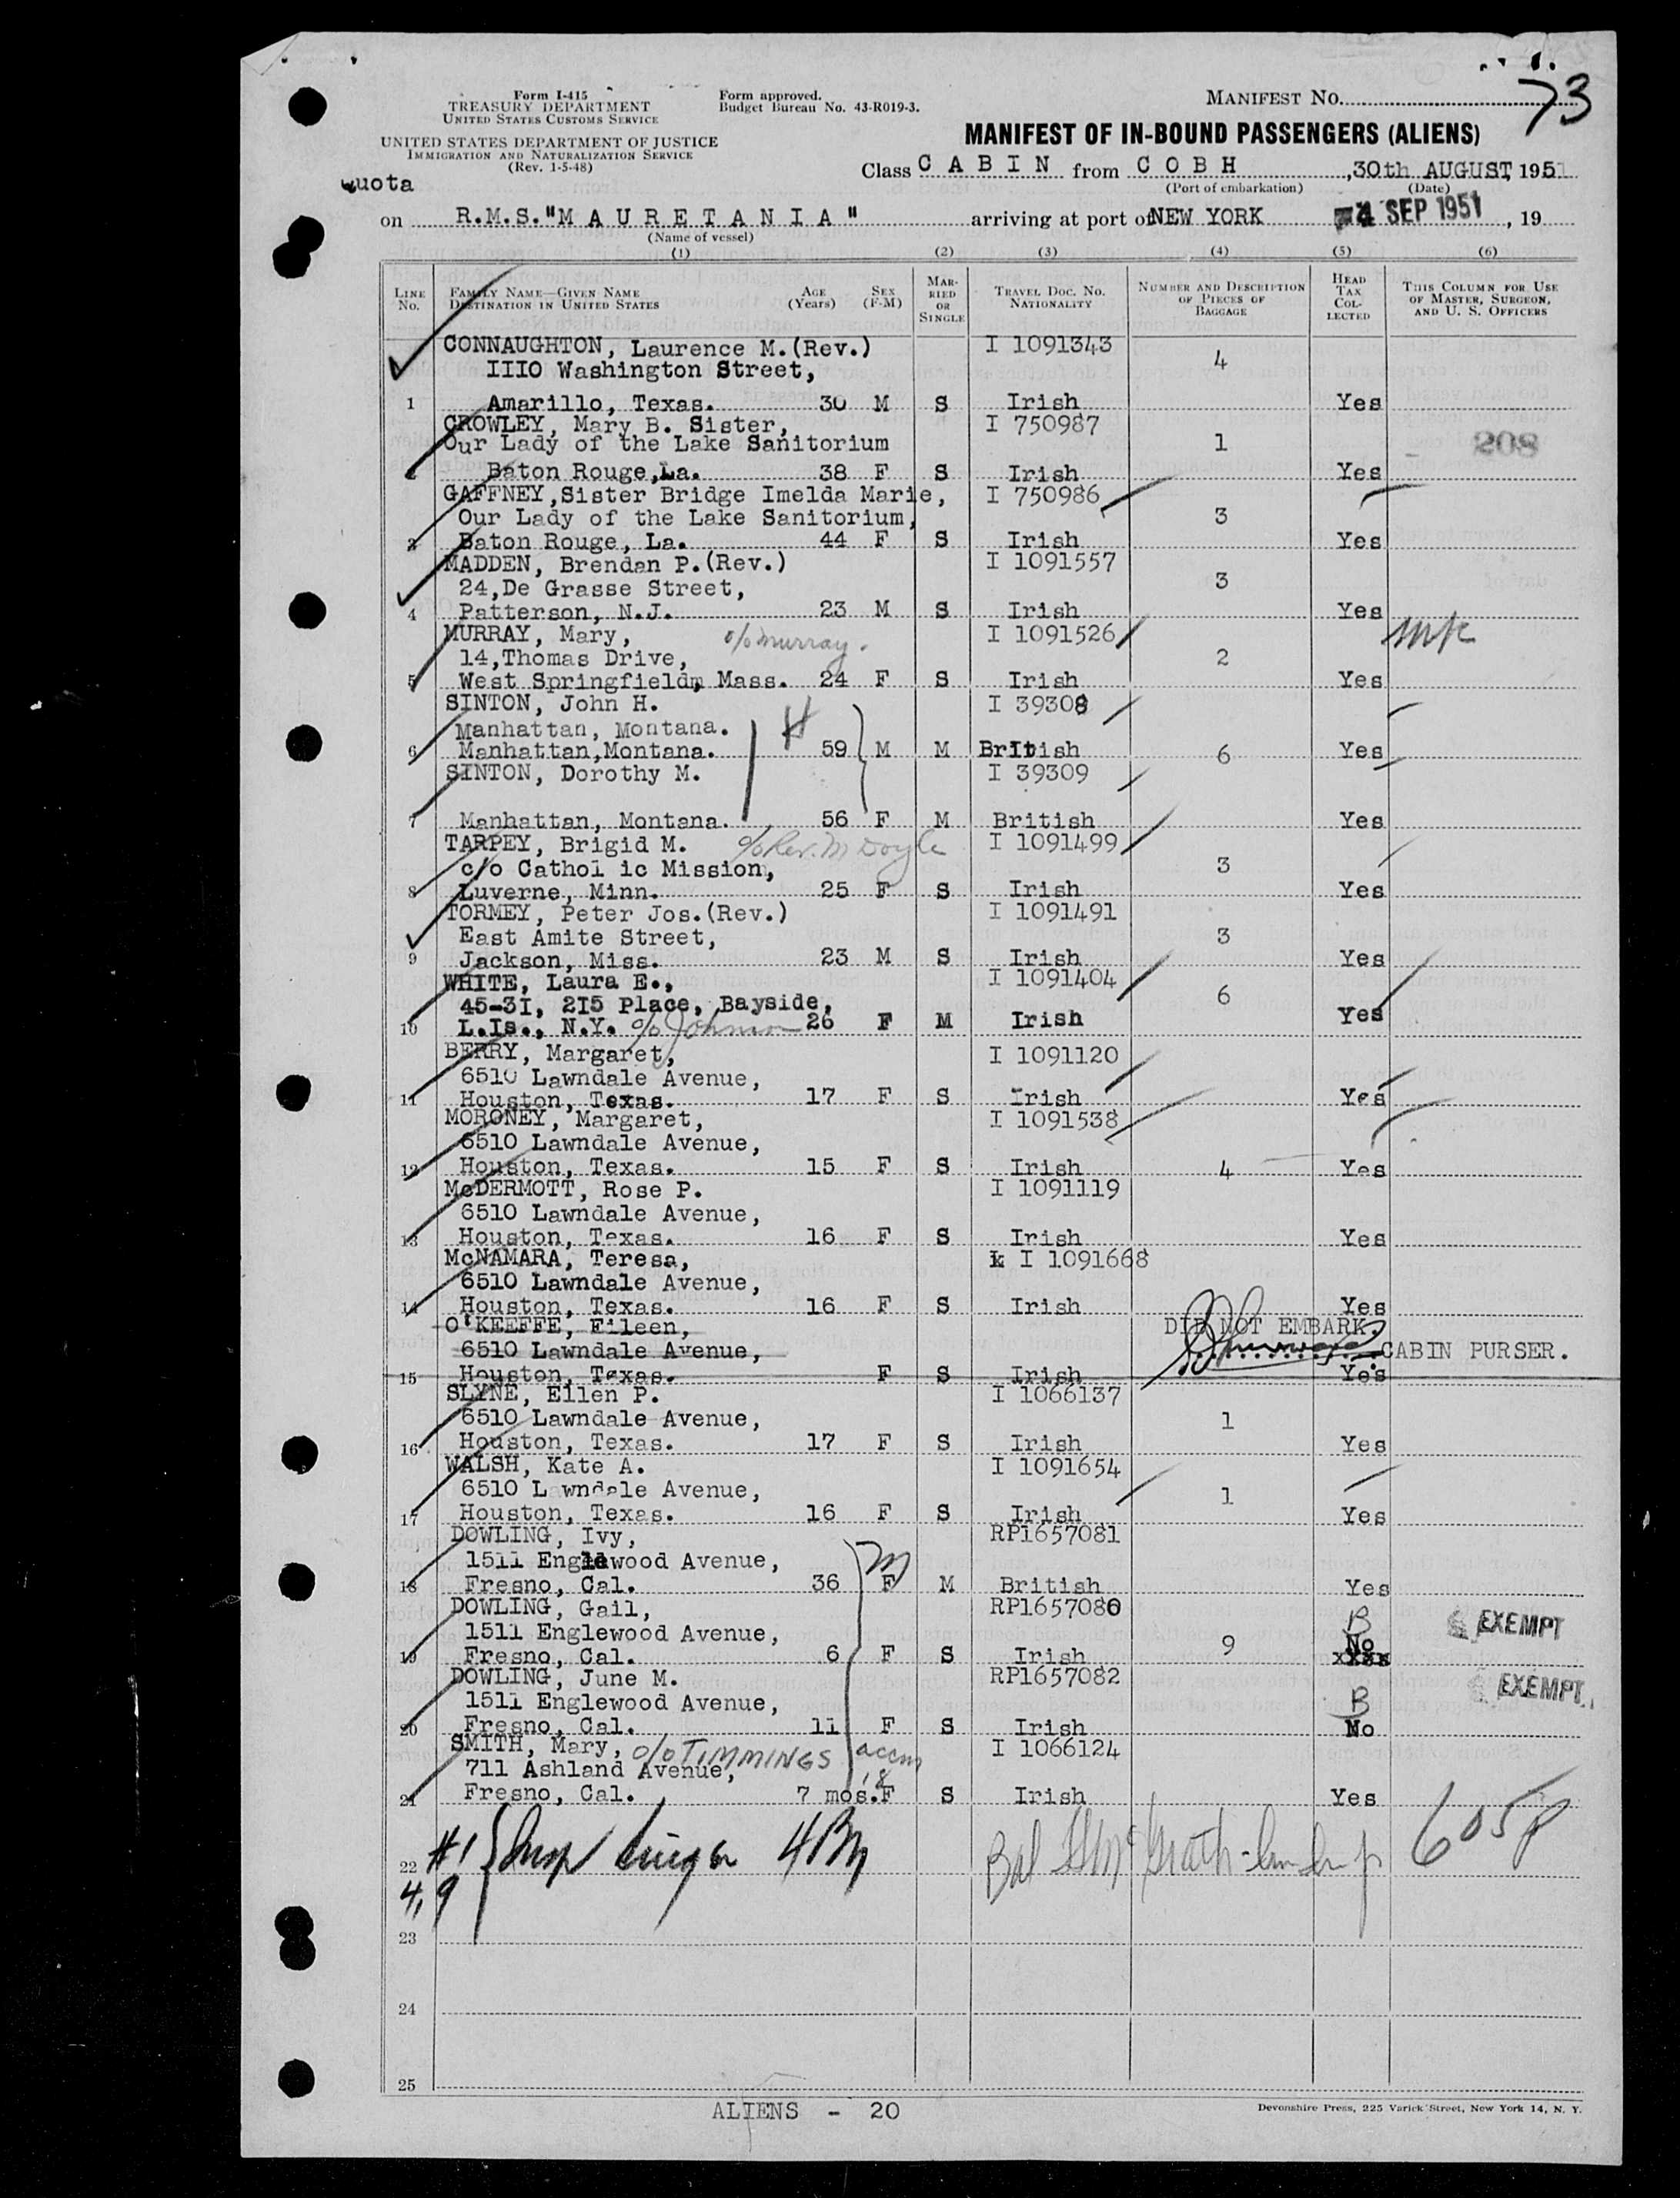 73
Form I-415
TREASURY DEPARTMENT
UNITED STATES CUSTOMS SERVICE
Form approved.
Budget Bureau No. 43-R019-3.
MANIFEST NO.
UNITED STATES DEPARTMENT OF JUSTICE
IMMIGRATION AND NATURALIZATION SERVICE
(Rev. 1-5-48)
MANIFEST OF IN-BOUND PASSENGERS (ALIENS)
Quota
Class C A B I N from C O B H ,30th AUGUST, 1951
(Port of embarkation) (Date)
on R.M.S."M A U R E T A N I A" arriving at port of NEW YORK 4 SEP 1951, 19
(Name of vessel)
(1) (2) (3) (4) (5) (6)
LINE NO. FAMILY NAME—GIVEN NAME DESTINATION IN UNITED STATES AGE (YEARS) SEX (F-M) MARRIED OR SINGLE TRAVEL DOC. NO. NATIONALITY NUMBER AND DESCRIPTION OF PIECES OF BAGGAGE HEAD TAX COLLECTED THIS COLUMN FOR USE OF MASTER, SURGEON, AND U. S. OFFICERS
CONNAUGHTON, Laurence M.(Rev.) I 1091343
IIIO Washington Street, 4
1 Amarillo, Texas. 30 M S Irish Yes
CROWLEY, Mary B. Sister, I 750987
Our Lady of the Lake Sanitorium 1 208
2 Baton Rouge,La. 38 F S Irish Yes
GAFFNEY,Sister Bridge Imelda Marie, I 750986
Our Lady of the Lake Sanitorium, 3
3 Baton Rouge, La. 44 F S Irish Yes
MADDEN, Brendan P.(Rev.) I 1091557
24,De Grasse Street, 3
4 Patterson, N.J. 23 M S Irish Yes
MURRAY, Mary, c/o Murray. I 1091526
14,Thomas Drive, 2
5 West Springfield, Mass. 24 F S Irish Yes
SINTON, John H. I 39308
Manhattan, Montana.
6 Manhattan,Montana. 59 M M British 6 Yes
SINTON, Dorothy M. I 39309
7 Manhattan, Montana. 56 F M British Yes
TARPEY, Brigid M. c/o Rev. M Doyle I 1091499
c/o Cathol ic Mission, 3
8 Luverne, Minn. 25 F S Irish Yes
TORMEY, Peter Jos.(Rev.) I 1091491
East Amite Street, 3
9 Jackson, Miss. 23 M S Irish Yes
WHITE, Laura E., I 1091404
45-3I, 2I5 Place, Bayside, 6
10 L.Is., N.Y. c/o Johnson 26 F M Irish Yes
BERRY, Margaret, I 1091120
6510 Lawndale Avenue,
11 Houston, Texas. 17 F S Irish Yes
MORONEY, Margaret, I 1091538
6510 Lawndale Avenue,
12 Houston, Texas. 15 F S Irish 4 Yes
McDERMOTT, Rose P. I 1091119
6510 Lawndale Avenue,
13 Houston, Texas. 16 F S Irish Yes
McNAMARA, Teresa, I 1091668
6510 Lawndale Avenue,
14 Houston, Texas. 16 F S Irish Yes
O'KEEFFE, Eileen, DID NOT EMBARK.
6510 Lawndale Avenue, CABIN PURSER.
15 Houston, Texas. F S Irish Yes
SLYNE, Eilen P. I 1066137
6510 Lawndale Avenue, 1
16 Houston, Texas. 17 F S Irish Yes
WALSH, Kate A. I 1091654
6510 L wndale Avenue, 1
17 Houston, Texas. 16 F S Irish Yes
DOWLING, Ivy, RP1657081
1511 Englewood Avenue,
18 Fresno, Cal. 36 F M British Yes
DOWLING, Gail, RP1657080
1511 Englewood Avenue, B EXEMPT
19 Fresno, Cal. 6 F S Irish 9 No
DOWLING, June M. RP1657082
1511 Englewood Avenue, B EXEMPT
20 Fresno, Cal. 11 F S Irish No
SMITH, Mary, c/o TIMMINGS accm 18 I 1066124
711 Ashland Avenue,
21 Fresno, Cal. 7 mos.F S Irish Yes
22 #1 6058
4,9
23
24
25
ALIENS - 20
Devonshire Press, 225 Varick Street, New York 14, N. Y.